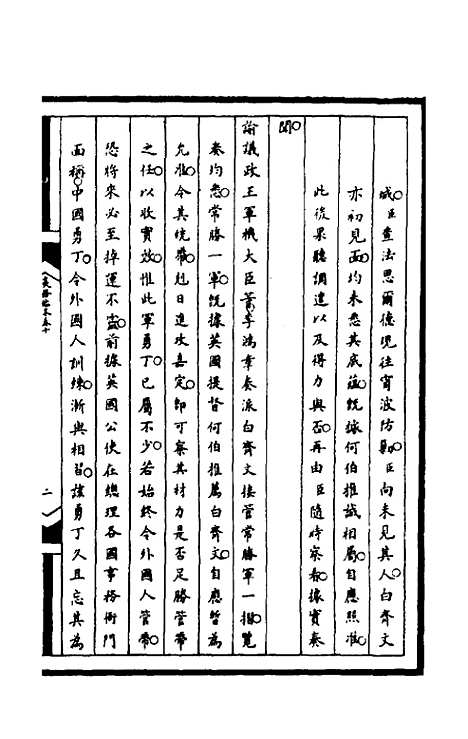 城。臣查法思爾德現往甯波防剿。臣向未見其人。白齊文
亦初見面。均未悉其底蘊。既據何伯推誠相屬。自應照准。
此後果聽調遣以及得力與否。再由臣隨時察看。據實奏
聞。
諭議政王軍機大臣等李鴻章奏派白齊文接管常勝軍一摺。覽
奏均悉。常勝一軍。既據英國提督何伯推薦白齊文。自應暫為
允准。令其統帶赳日進攻嘉定。即可察其材力是否足勝管帶
之任。以收實效。惟此軍勇丁。已屬不少。若始終令外國人管帶。
恐將來必至掉運不靈。前據英國公使在總理各國事務衙門
面稱。中國勇丁。令外國人訓練。漸與相習。該勇丁久且忘其為
二